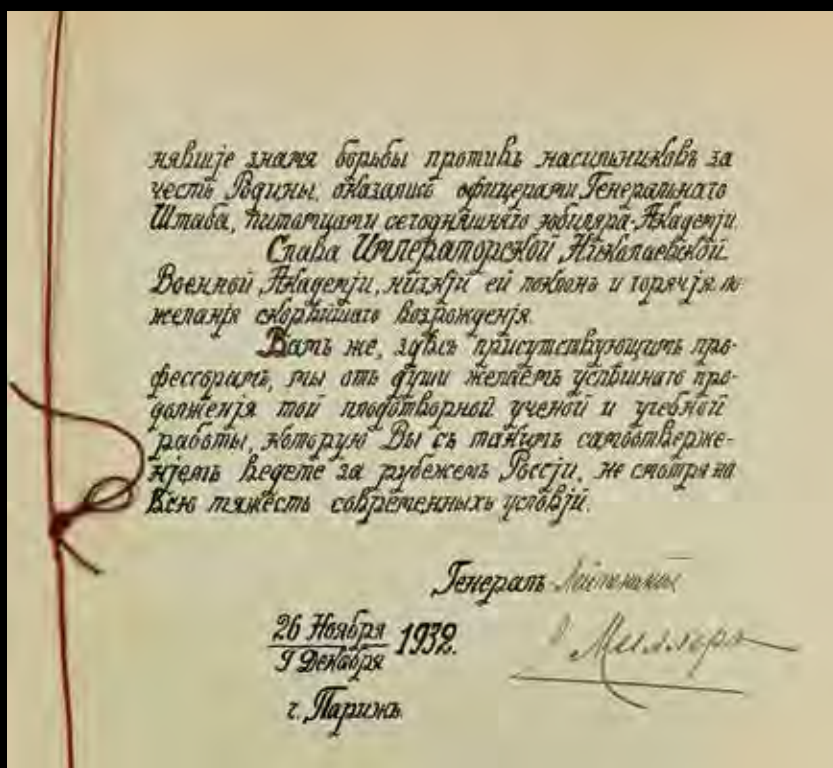 нявшіе знамя борьбы противъ насильниковъ за
честь Родины, оказались офицерами Генеральнаго
Штаба, питомцами сегодняшняго юбиляра-Академіи.
Слава Императорской Николаевской
Военной Академіи, низкій ей поклонъ и горячія по
желанія скорѣйшаго возрожденія.
Вамъ же, здѣсь присутствующимъ про-
фессорамъ, мы отъ души желаемъ успѣшнаго про-
долженія той плодотворной ученой и учебной
работы, которую Вы съ такимъ самоотверже-
ніемъ ведете за рубежемъ Россіи, не смотря на
всю тяжесть современныхъ условій.
Генералъ Лейтенантъ
26 Ноября
9 Декабря 1932.
Миллеръ
г. Парижъ.